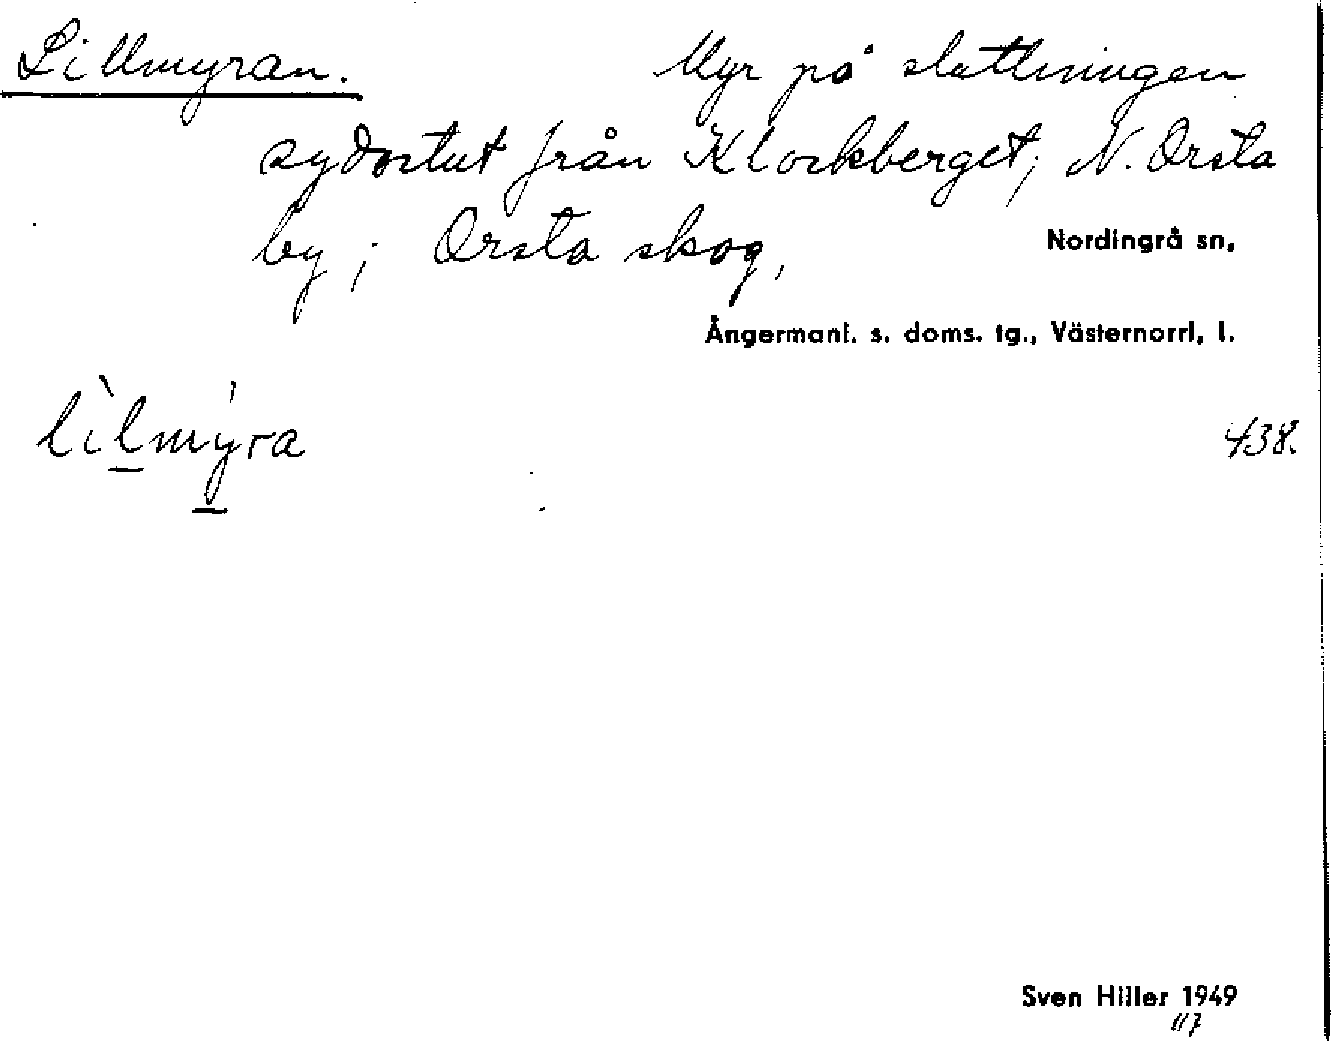 Lillmyran. Myr på sluttningen
sydostut från Klockberget; N. Orsta
by; Orsta skog,
Nordingrå sn,
Ångermanl. s. doms. tg., Västernorrl, l.
lìlmýra
438.
Sven Hiller 1949
117